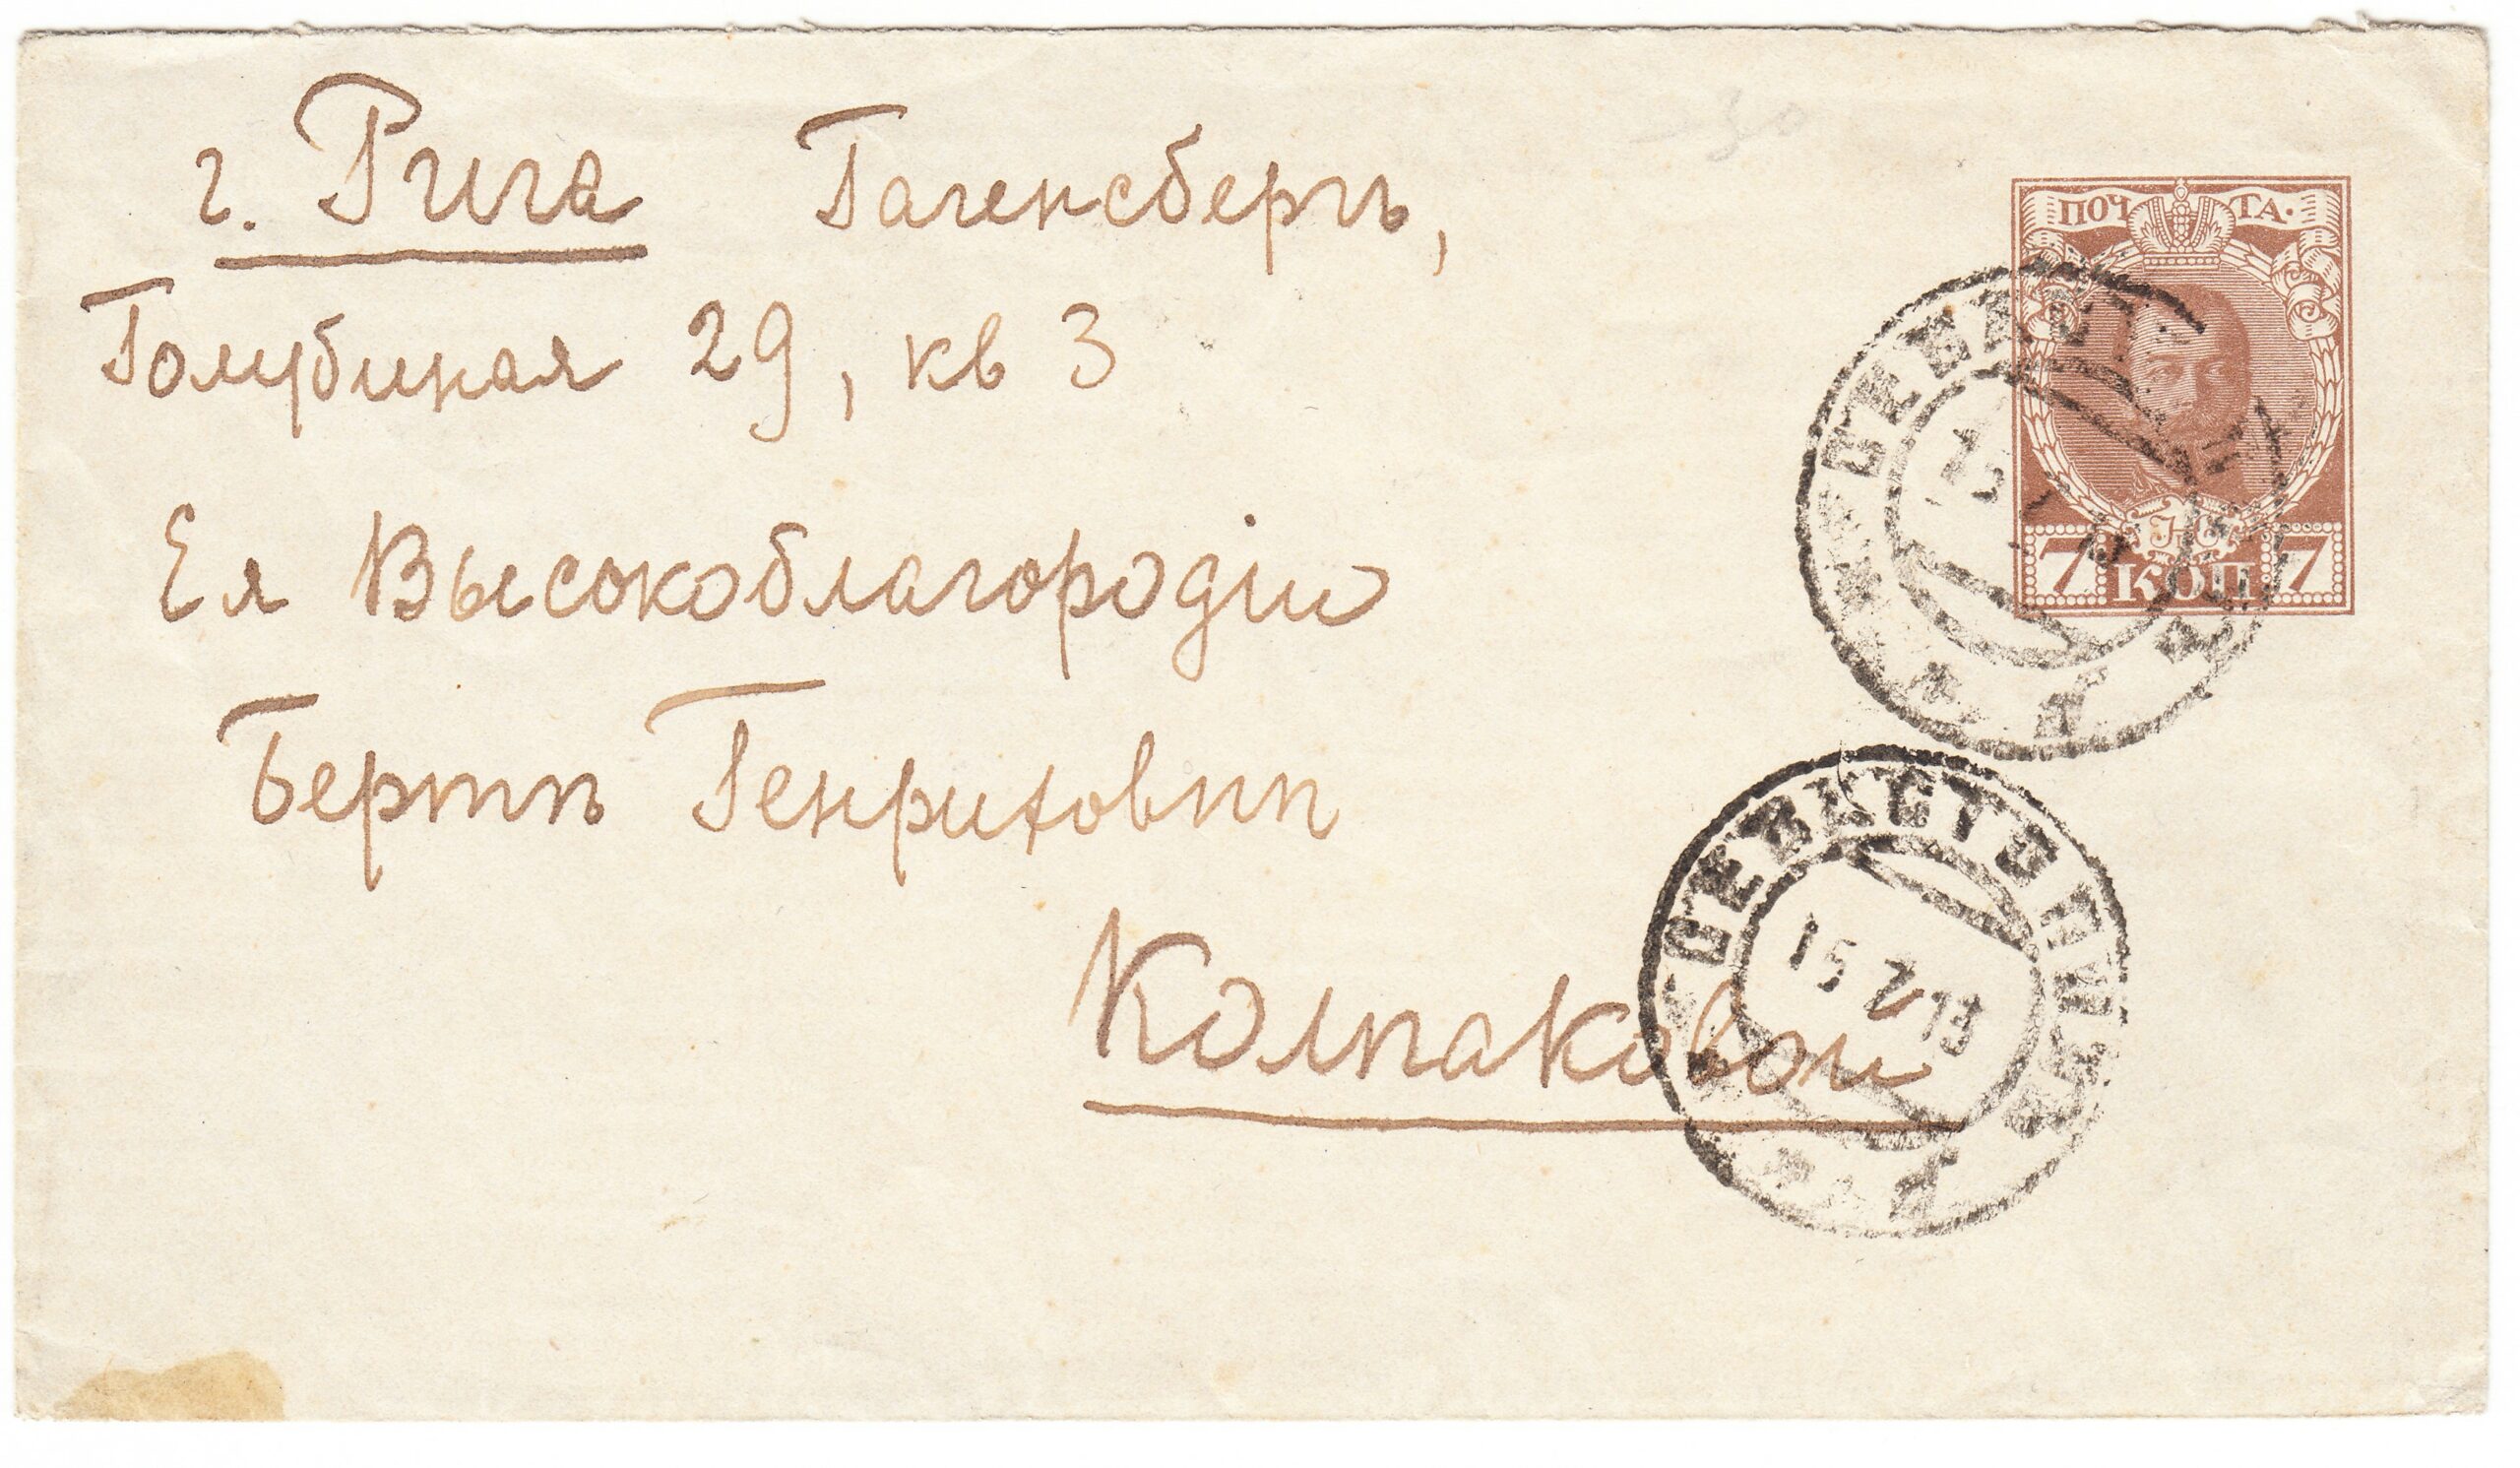 г. Рига Гагенсбергъ,
Голубиная 29, кв 3
Ея Высокоблагородiю
Бертѣ Генриховнѣ
Колпаковой
ПОЧТА.
7 КОП 7
СЕВАСТ
СЕВАСТОПОЛЬ
15 7 13